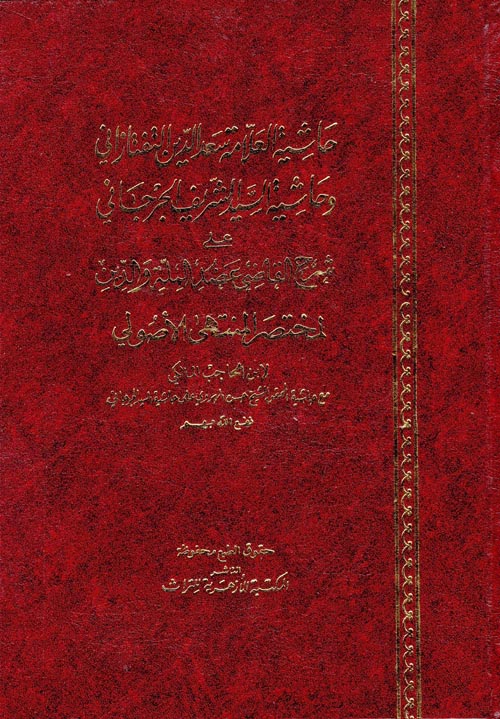 حاشية العلامة سعد الدين التفتازاني
وحاشية السيد الشريف الجرجاني
على
شرح القاضي عضد الملة والدين
لمختصر المنتهى الأصولي
لابن الحاجب المالكي
مع حاشية المحقق الشيخ حسن الهروي على حاشية السيد الجرجاني
نفع الله بهم
حقوق الطبع محفوظة
الناشر
المكتبة الأزهرية للتراث